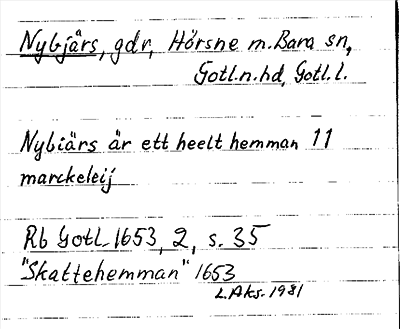 Nybjärs, gdr, Hörsne m. Bara sn,
Gotl.n.hd, Gotl.l.
Nybiärs är ett heelt hemman 11
marckeleij
Rb Gotl 1653, 2, s. 35
"Skattehemman" 1653
L.Aks. 1981